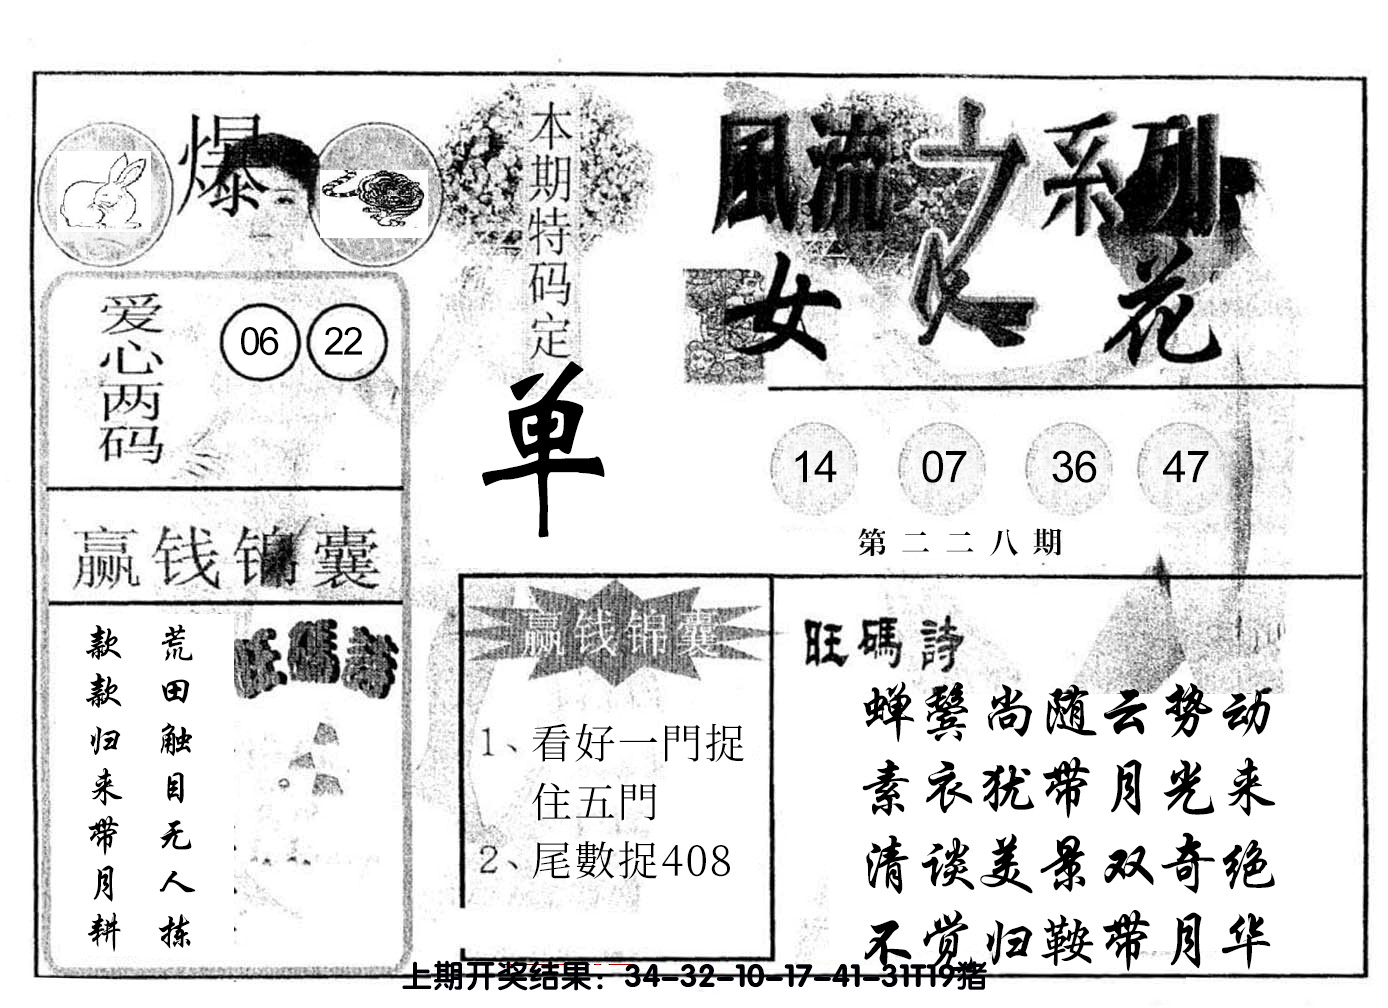 爆
本期特码定
单
風流之系列
女人花
爱心两码
06 22
14 07 36 47
第二二八期
赢钱锦囊
荒田触目无人拣
款款归来带月耕
旺碼詩
赢钱锦囊
1、看好一門捉
住五門
2、尾數捉408
旺碼詩
蝉鬓尚随云势动
素衣犹带月光来
清谈美景双奇绝
不觉归鞍带月华
上期开奖结果：34-32-10-17-41-31T19猪